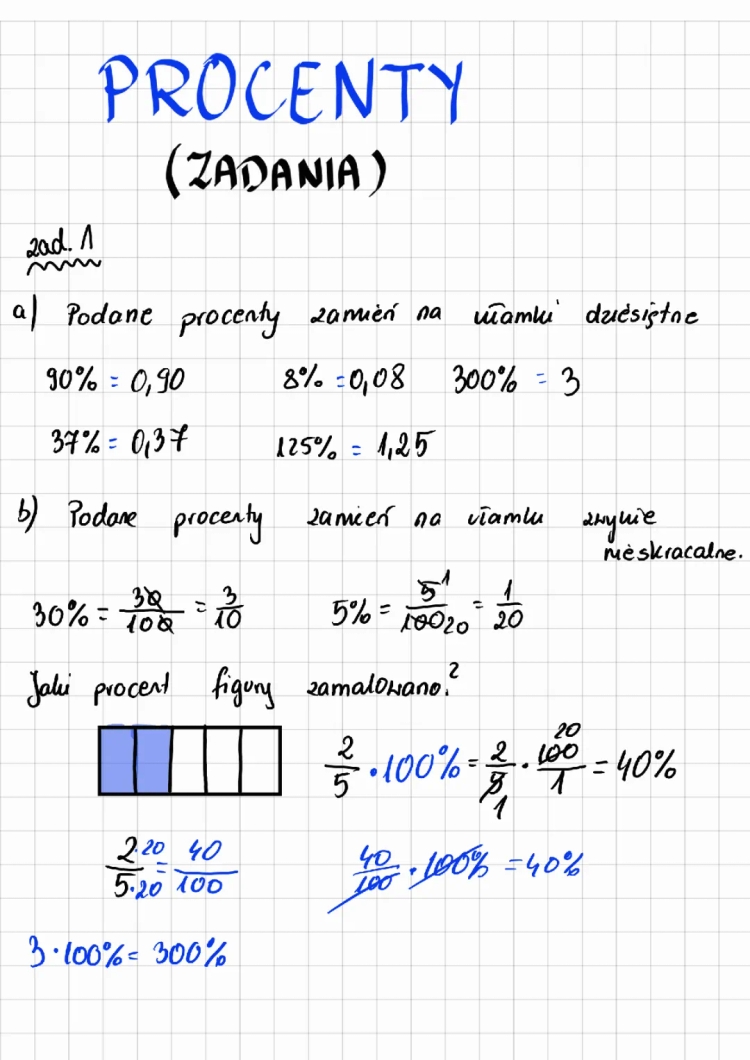 PROCENTY
(ZADANIA)
zad. 1
a) Podane procenty zamień na ułamki dziesiętne
90% = 0,90 8% = 0,08 300% = 3
37% = 0,37 125% = 1,25
b) Podane procenty zamień na ułamki zwykłe
nieskracalne.
30% = 30/100 = 3/10 5% = 5 1/100 20 = 1/20
Jaki procent figury zamalowano?
2/5 · 100% = 2/5 1 · 100 20/1 = 40%
2·20/5·20 = 40/100 40/100 · 100% = 40%
3 · 100% = 300%